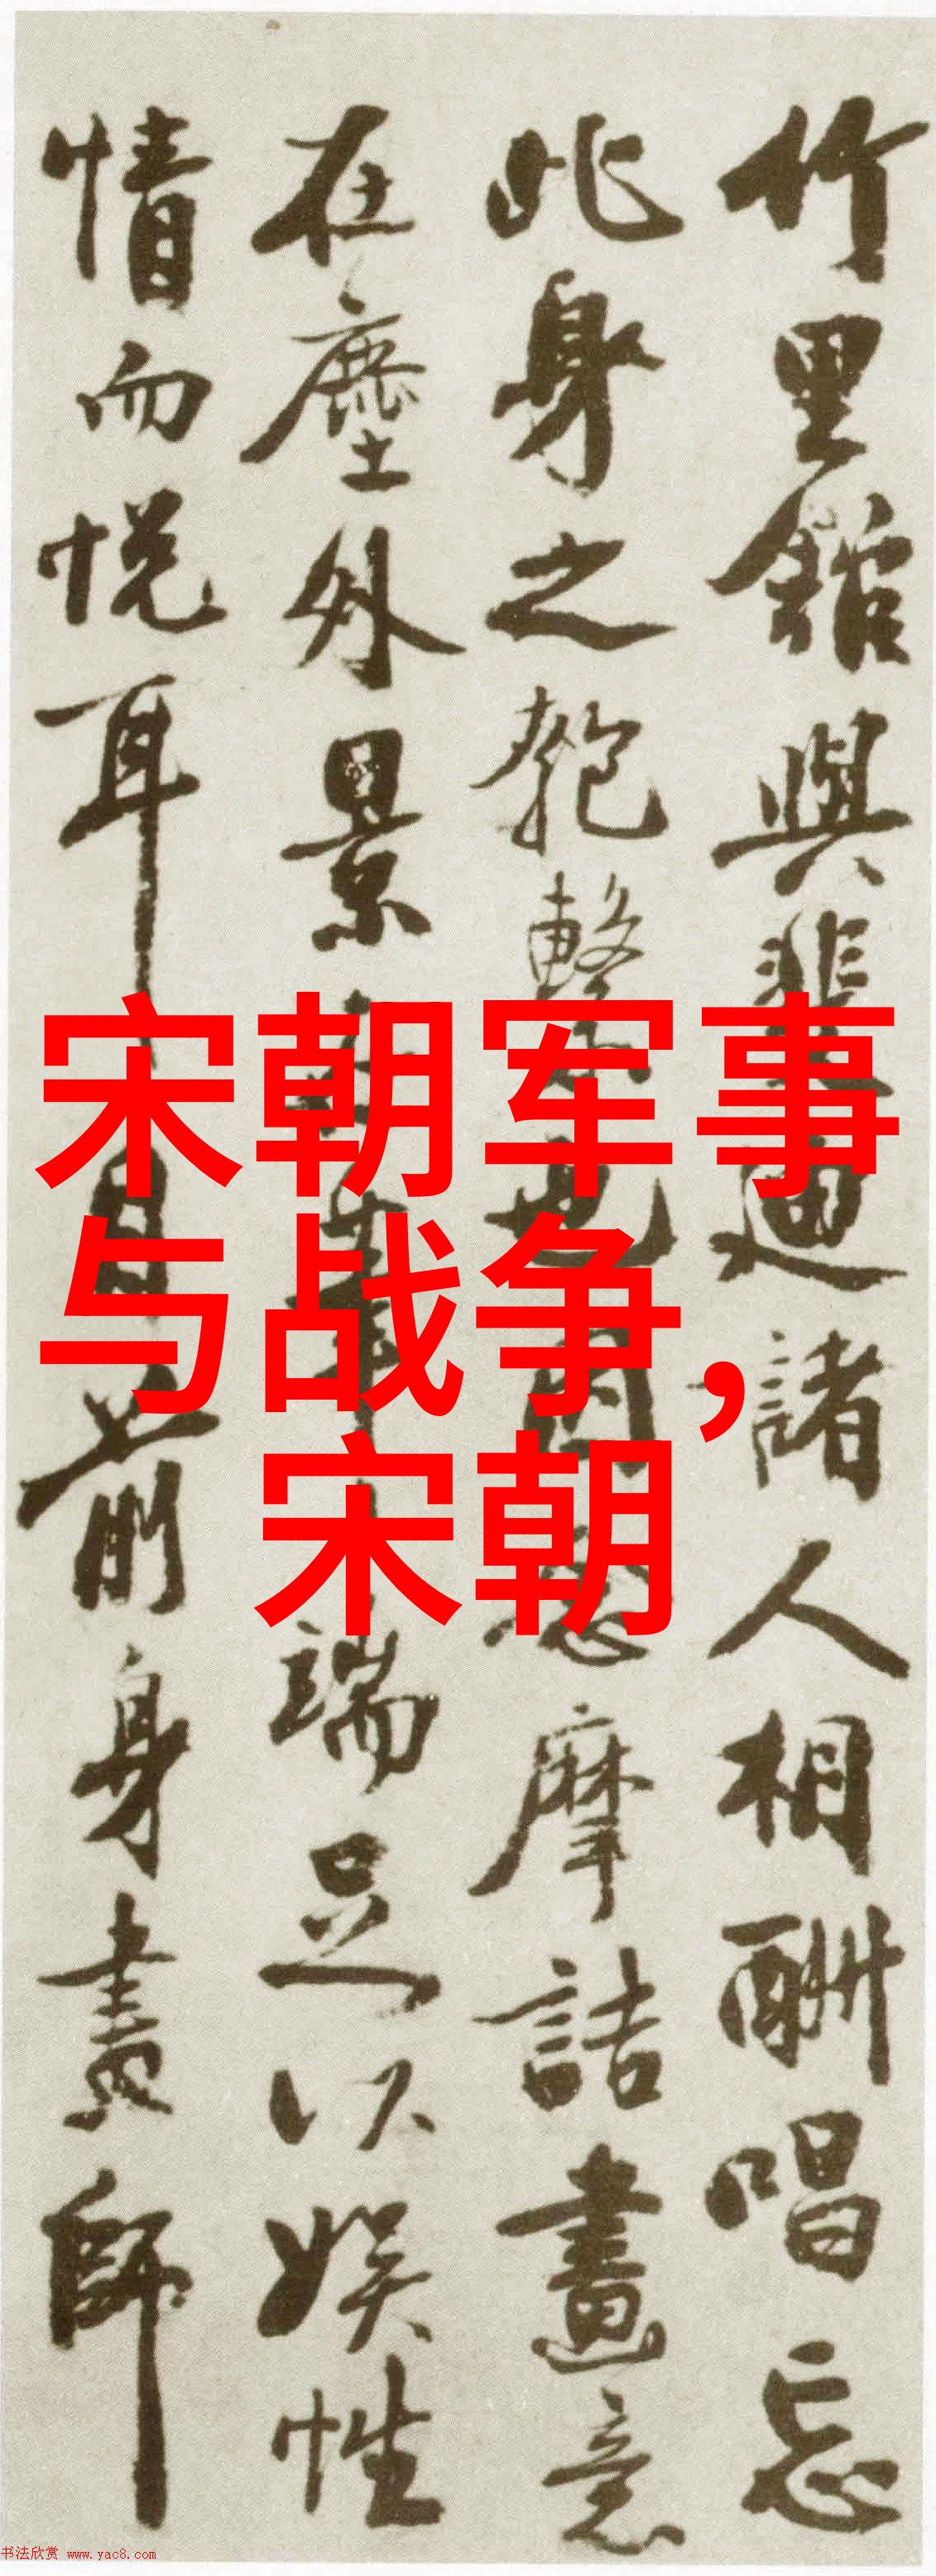 竹里館與裴迪諸人相酬唱忘
此身之匏繫也因思摩詰畫意
在塵外景
端足以娱性
情而悦耳目前身畫師
宋朝军事
与战争，
宋朝
书法欣赏 www.yac8.com